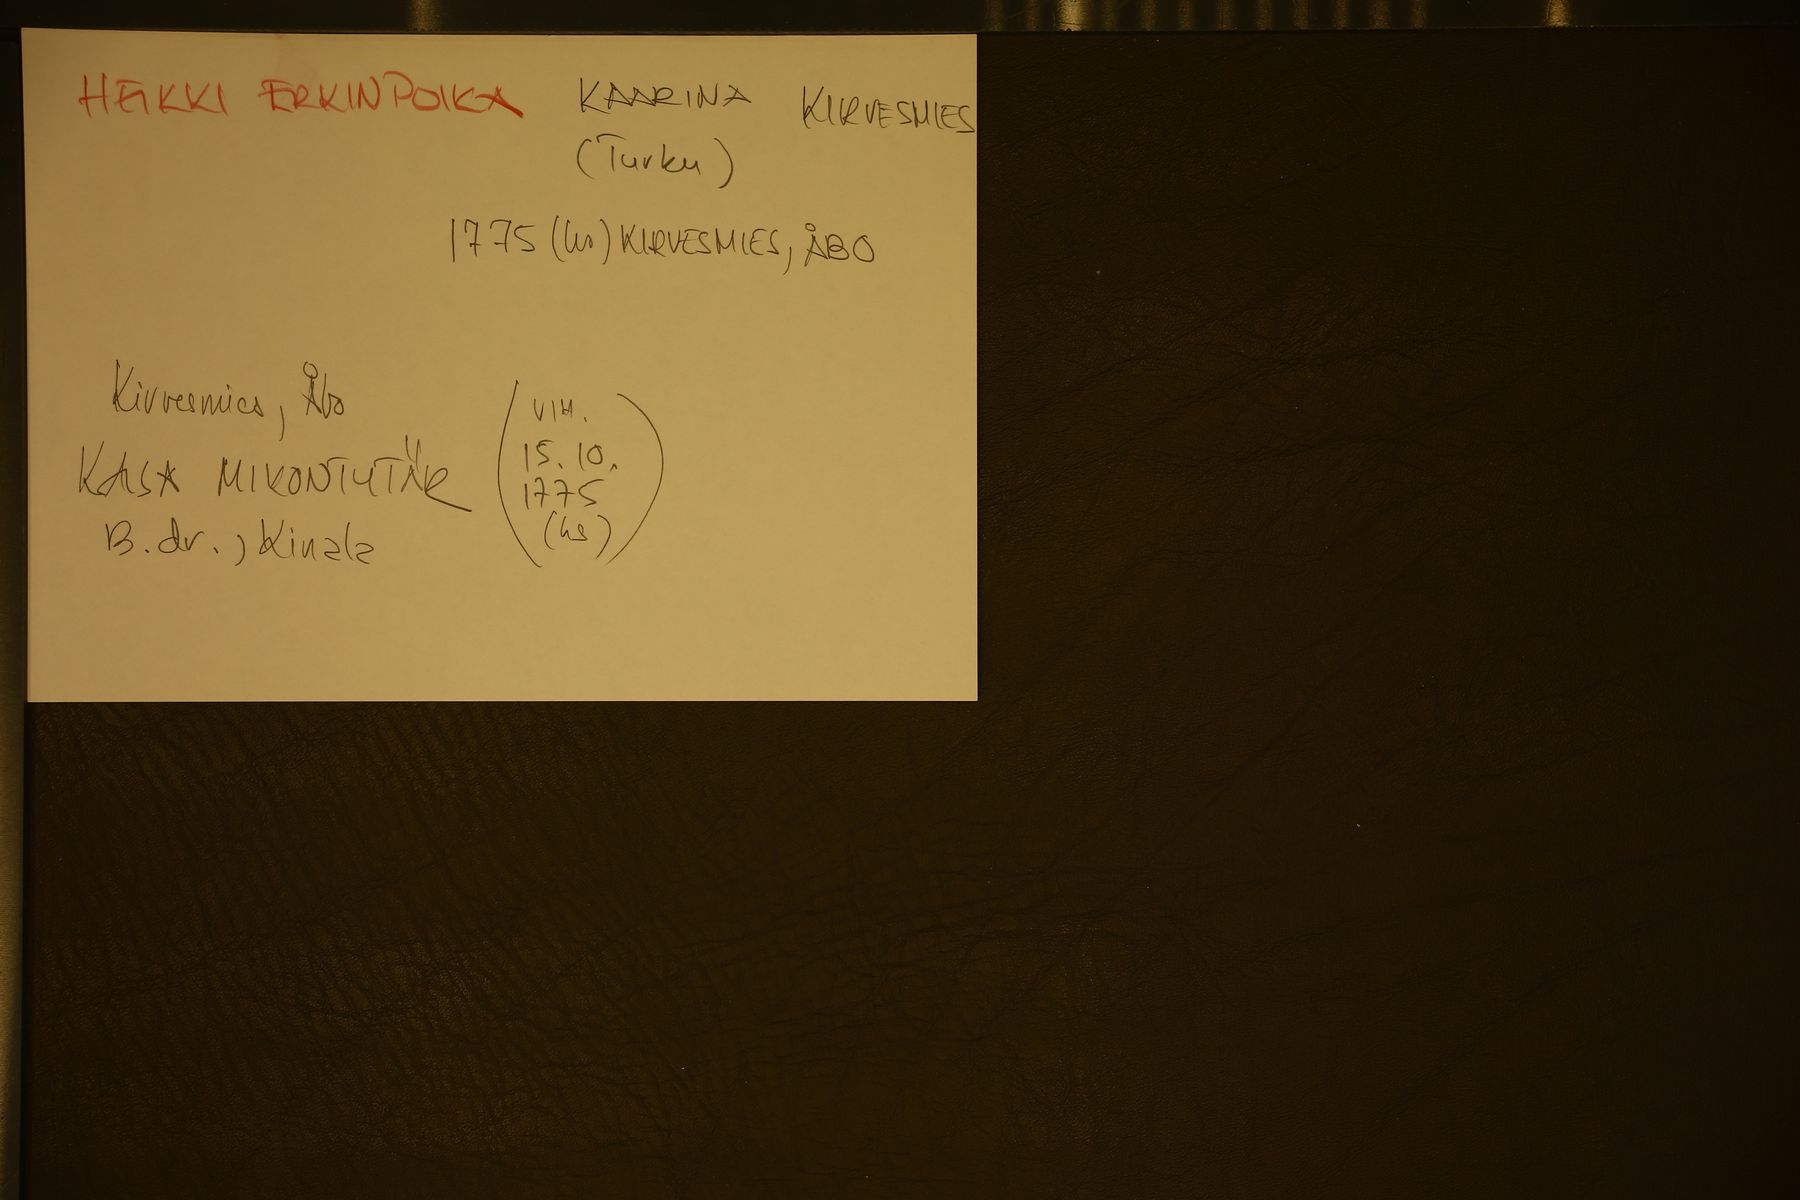 HEIKKI ERKINPOIKA KAARINA KIRVESMIES
(Turku)
1775 (hs) KIRVESMIES, ÅBO
Kirvesmies, Åbo
KAISA MIKONTYTÄR
B.dr., Kinala
(VIH.
15.10.
1775
(hs))